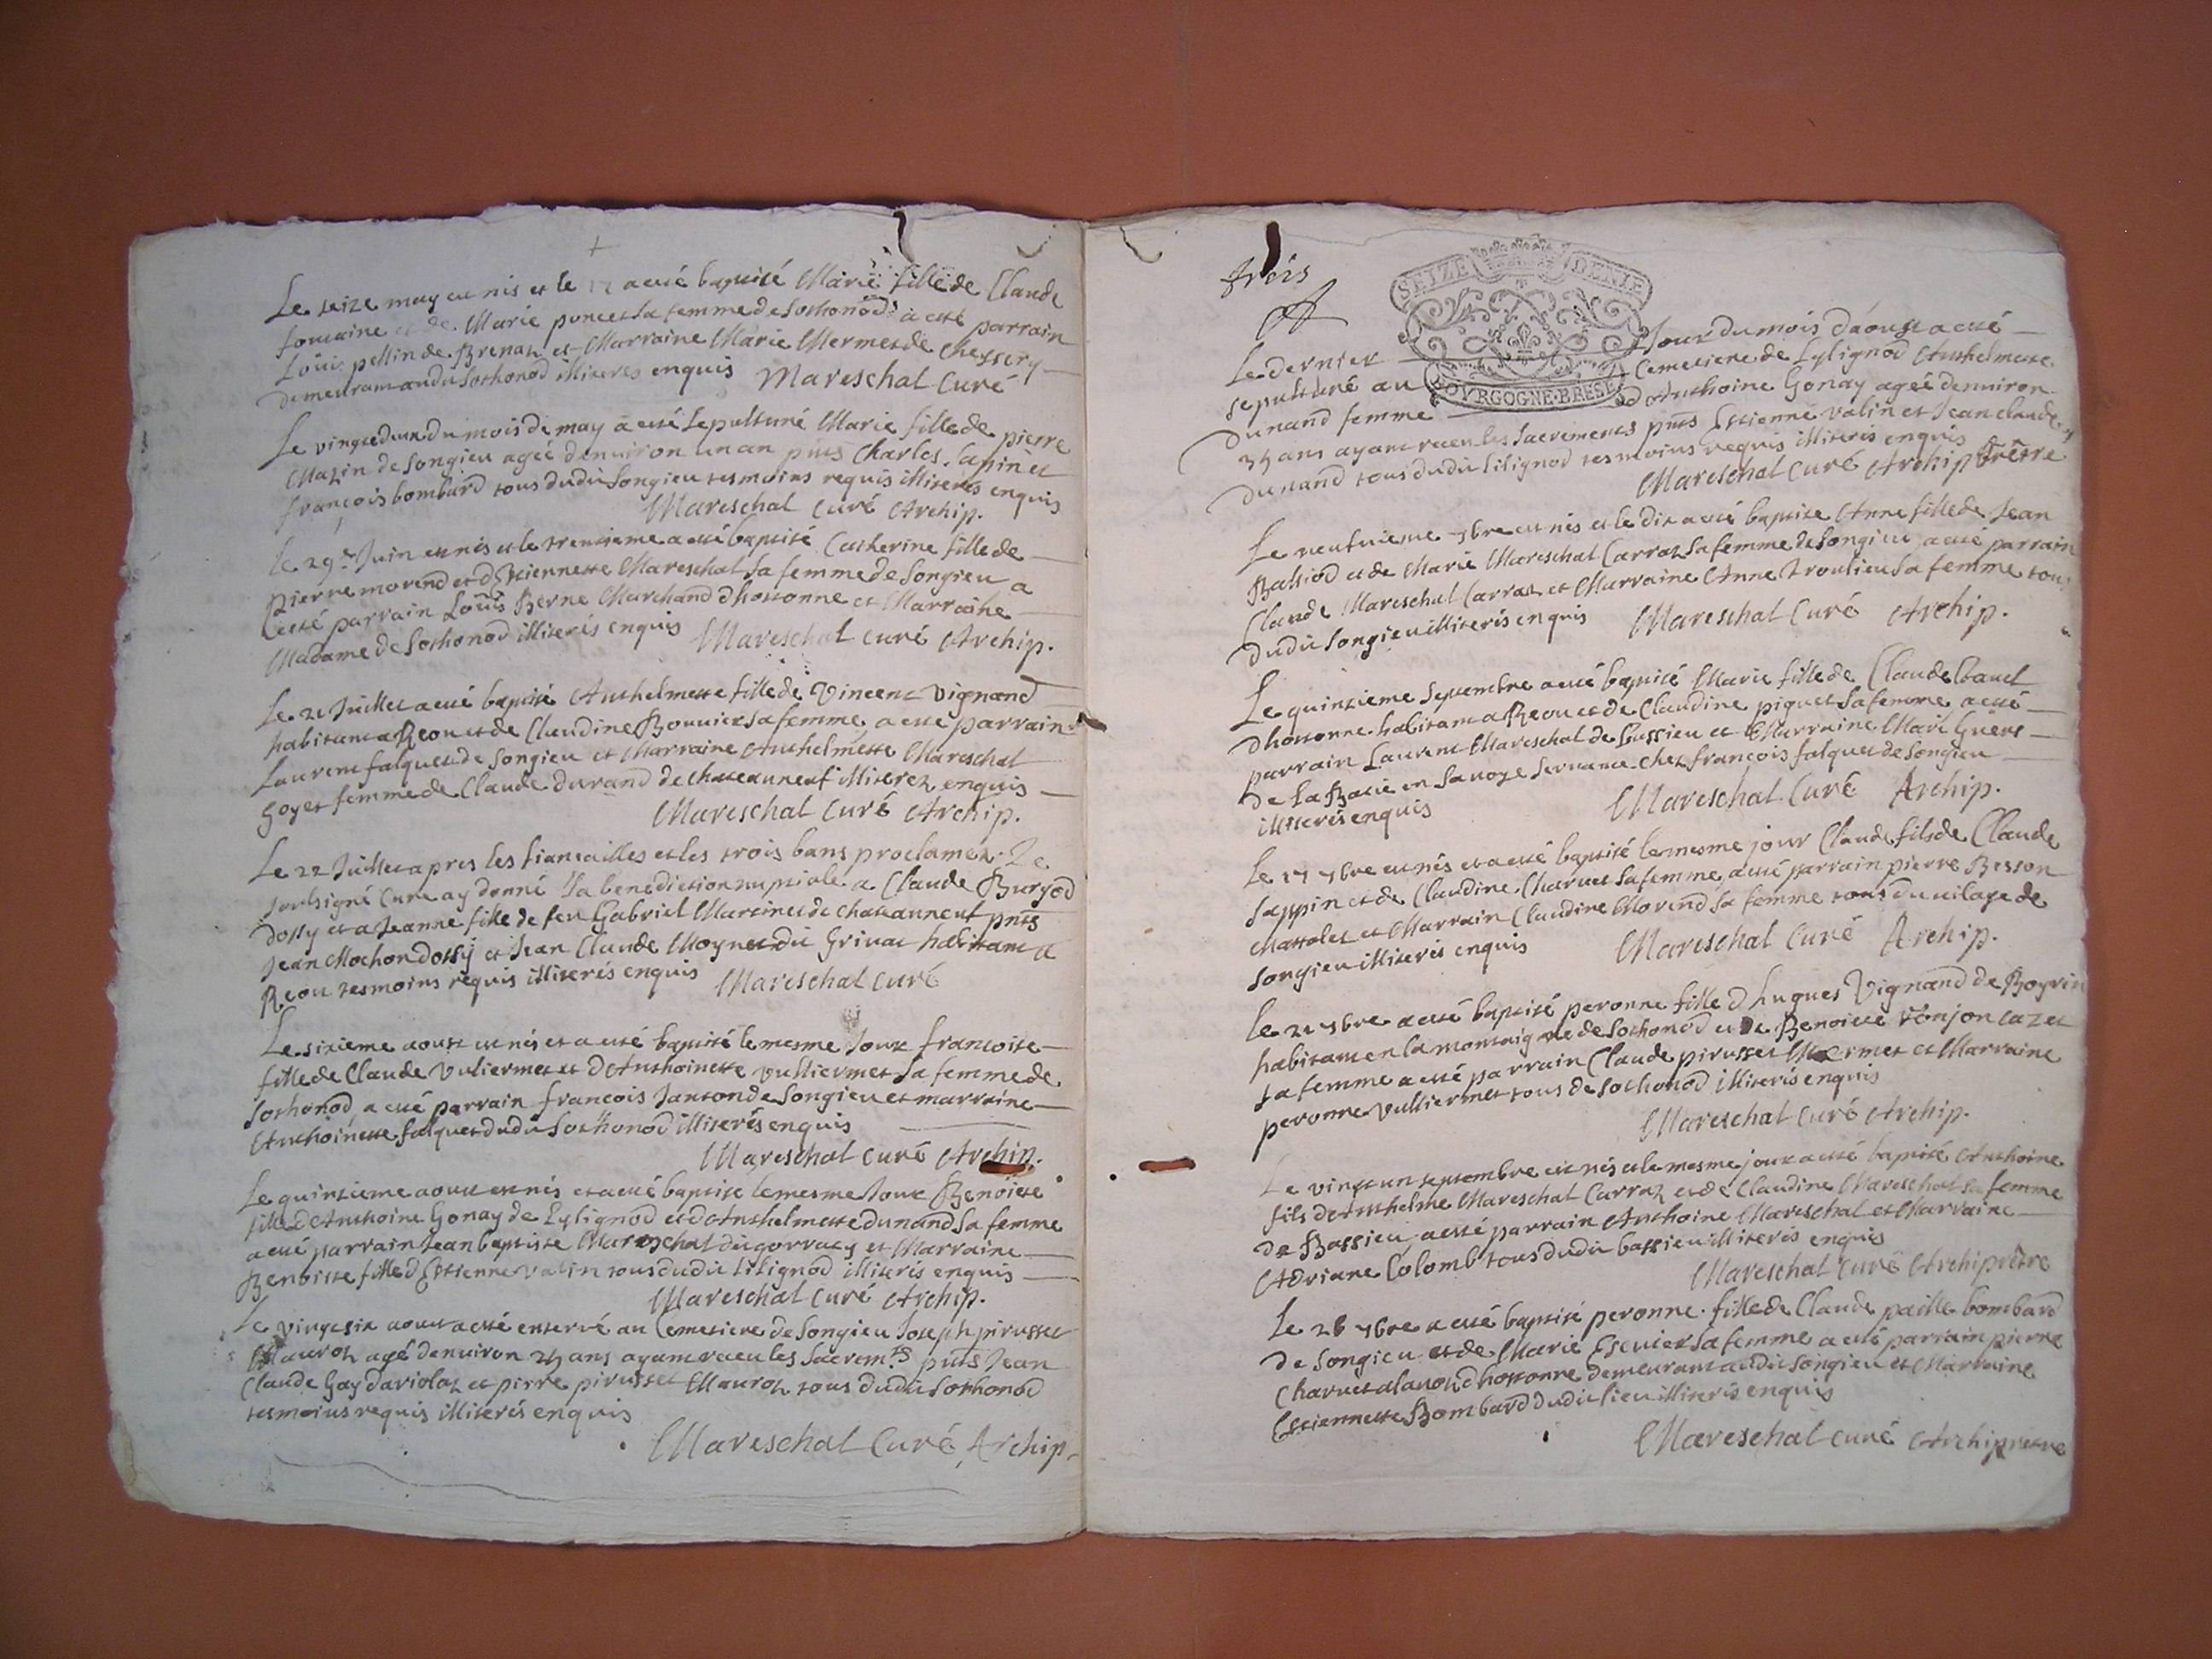 Le seize may est nis et le 17 a esté baptisé Marie fille de Claude
fontaine et de Marie poncet sa femme de Sothonod a esté parrain
Louis pellin de Brenaz et Marraine Marie Mermet de Chezery
demeurant audit Sothonod illiteres enquis Mareschal Curé
Le vingtedeux du mois de may a esté sepulturé Marie fille de pierre
Mazin de Songieu agée denuiron un an pnts Charles Sapin et
françois bombard tous dudit Songieu tesmoins requis illiterés enquis
Mareschal Curé Archip.
le 29e Juin est nis et le trentieme a esté baptisé Catherine fille de
pierre morend et d'Estiennette Mareschal sa femme de Songieu a
esté parrain Louis Berne Marchand dhostonne et Marraine
Madame de Sothonod illiterés enquis Mareschal Curé Archip.
Le 21 Juillet a esté baptisé Anthelmette fille de Vincent Vignand
habitant a Reou et de Claudine Bouuier sa femme, a esté parrain
Laurent falquet de Songieu et Marraine Anthelmette Mareschal
goyet femme de Claude durand de chateauneuf illiterez enquis
Mareschal Curé Archip.
Le 22 Juillet apres les fiansailles et les trois bans proclamez Je
soubsigné Curé ay donné la benediction nuptiale a Claude Burjod
dossy et a Jeanne fille de feu Gabriel Martinet de chateauneuf pnts
Jean Mochon dossy et Jean Claude Moynet dit Griuat habitant a
Reou tesmoins requis illiterés enquis Mareschal Curé
Le sixieme aoust est nés et a esté baptisé le mesme Jour francoise
fille de Claude Vuliermet et d'Anthoinette Vulliermet sa femme de
Sothonod, a esté parrain francois Janton de Songieu et marraine
Anthoinette falquet dudit Sothonod illiterés enquis
Mareschal Curé Archip.
Le quinzieme aoust est nés et a esté baptisé le mesme Jour Benoiste
fille d'Anthoine Gonay de Lylignod et d'Anthelmette dunand sa femme
a esté parrain Jean baptiste Mareschal dit gorracy et Marraine
Benoiste fille d'Estienne Valin tous dudit lilignod illiterés enquis
Mareschal Curé Archip.
Le vingtsix aoust a esté enterré au Cemetiere de Songieu Joseph pirusset
Mauroz agé denuiron 25 ans ayant receu les Sacremts pnts Jean
Claude Gay dariolaz et pierre pirusset Mauroz tous dudit Sothonod
tesmoins requis illiterés enquis
Mareschal Curé Archip.
trois
SEIZE DENIE
BOVRGOGNE·BRESE
Le dernier Jour du mois d'aoust a esté
sepulturé au Cemetiere de Lylignod Anthelmette
dunand femme d'Anthoine Gonay agée denuiron
35 ans ayant receu les Sacrements pnts Estienne Valin et Jean claude
dunand tous dudit lilignod tesmoins requis illiteris enquis
Mareschal Curé Archiprêtre
Le neufuieme 7bre est nés et le dix a esté baptisé Anne fille de Jean
Balliod et de Marie Mareschal Carraz sa femme de Songieu a esté parrain
Claude Mareschal Carraz et Marraine Anne Troulieu sa femme tous
dudit Songieu illiterés enquis Mareschal Curé Archip.
Le quinzieme Septembre a esté baptisé Marie fille de Claude
dhostonne habitant a Reou et de Claudine piquet sa femme a esté
parrain Laurent Mareschal de Lussieu et Marraine Marie
de la en Sauoye Seruante chez françois falquet de Songieu
illiterés enquis Mareschal Curé Archip.
Le 17 7bre est nés et a esté baptisé le mesme jour Claude fils de Claude
Sappin et de Claudine Charuet sa femme, a esté parrain pierre Besson
chattalet et Marrain Claudine Morend sa femme tous du uilage de
Songieu illiterés enquis Mareschal Curé Archip.
le 21 7bre a esté baptisé peronne fille d'hugues Vignand de
habitant en la montaigne de Sothonod et de Benoiste
sa femme a esté parrain Claude pirusset Mermet et Marraine
peronne Vulliermet tous de Sothonod illiterés enquis
Mareschal Curé Archip.
Le vingt un septembre est nés et le mesme jour a esté baptisé Anthoine
fils d'Anthelme Mareschal Carraz et de Claudine Mareschal sa femme
de Bassieu, a esté parrain Anthoine Mareschal et Marraine
Adriane Colomb tous dudit bassieu illiterés enquis
Mareschal Curé Archiprêtre
Le 26 7bre a esté baptisé peronne fille de Claude paille bombard
de Songieu et de Marie Escuier sa femme a esté parrain pierre
Charuet dhostonne demeurant audit Songieu et Marraine
Estiennette Bombard dudit lieu illiterés enquis
Mareschal Curé Archipretre